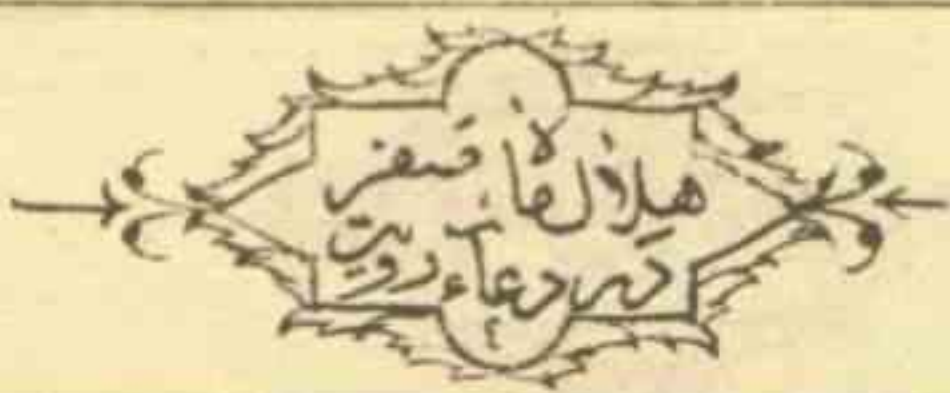 هلال ماه صفر
در دعاء رویت
٤